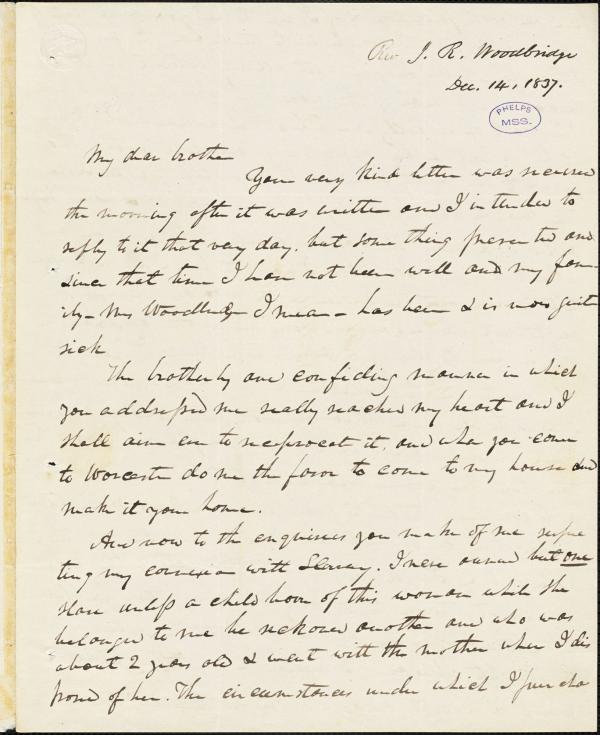 Rev J. R. Woodbridge
Dec. 14, 1837.
PHELPS
MSS.
My dear brother
Your very kind letter was received
the morning after it was written and I intended to
reply to it that very day, but some thing prevented and
since that time I have not been well and my fam-
ily - Mrs Woodbridge I mean - has been & is now quite
sick
The brotherly and confiding manner in which
you addressed me really reached my heart and I
shall aim ever to reciprocate it, and when you come
to Worcester do me the favor to come to my house and
make it your home.
And now to the enquiries you make of me respec
ting my connexion with Slavery. I never owned but one
slave unless a child born of this woman while she
belonged to me be reckoned another and who was
about 2 years old & went with the mother when I dis
posed of her. The circumstances under which I purcha